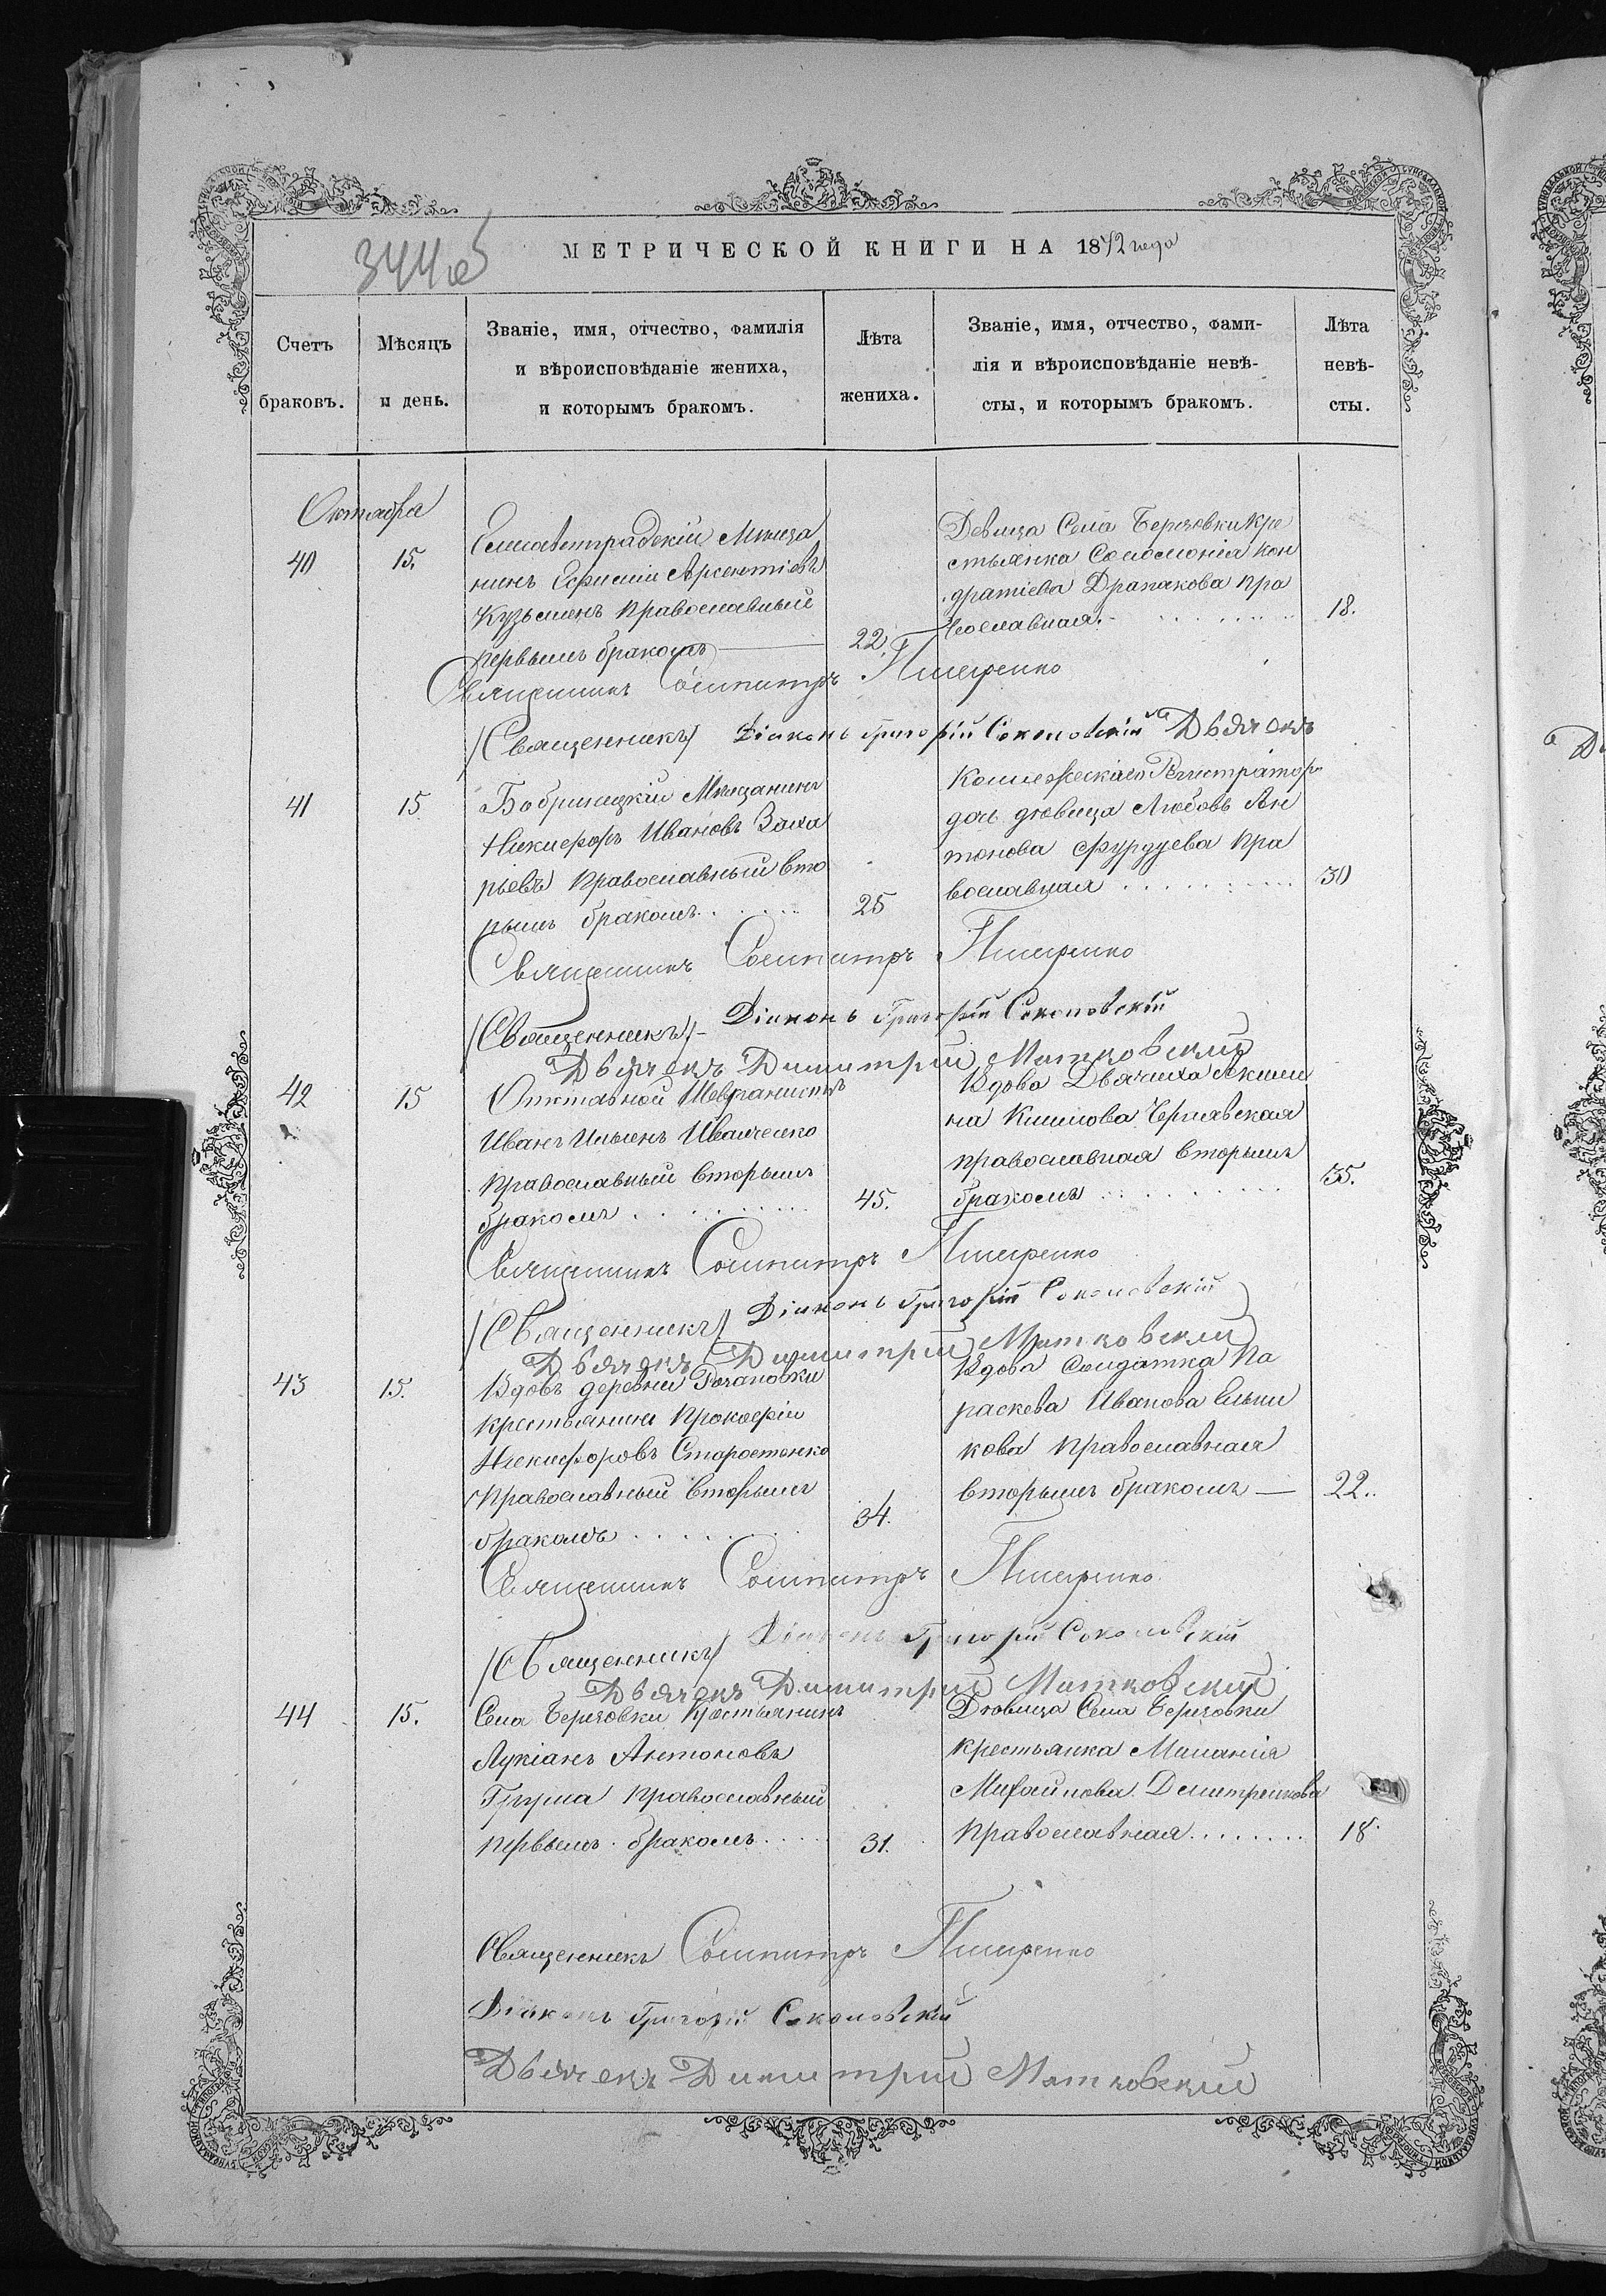 344об
МЕТРИЧЕСКОЙ КНИГИ НА 1872 года
Счетъ браковъ.
Мѣсяцъ и день.
Званіе, имя, отчество, фамилія
и вѣроисповѣданіе жениха,
и которымъ бракомъ.
Лѣта жениха.
Званіе, имя, отчество, фами-
лія и вѣроисповѣданіе невѣ-
сты, и которымъ бракомъ.
Лѣта невѣ-
сты.
Октября
40
15.
Елисаветградскій мѣща
нинъ Ефимій Арсентіевъ
Кузьминъ православный
первымъ бракомъ
22.
Девица Села Березовки кре
стьянка Соломонія Кон
дратіева Драпакова пра
вославная
18.
Священникъ Пиперенко
(Священникъ) Діаконъ Григорій Соколовскій Дьячекъ
41
15
Бобринецкій Мѣщанинъ
Никифоръ Ивановъ Заха
рьевъ православный вто
рымъ бракомъ
25
Коллежскаго Регистратора
дочь дѣвица Любовь Ан
тонова Фурдуева пра
вославная
30
Священникъ
(Священникъ) Діаконъ Григорій Соколовскій
Дьячекъ Димитрій Матковский
42
15
Отставной
Иванъ Ильинъ Иванченко
православный вторымъ
бракомъ
45.
Вдова Дьячиха Акили
на Климова Чернявская
православная вторымъ
бракомъ
35.
Священникъ
(Священникъ) Діаконъ Григорій Соколовскій
Дьячекъ Димитрій Матковский
43
15.
Вдовъ деревни
крестьянинъ Прокофій
Никифоровъ Старостенко
православный вторымъ
бракомъ
34.
Вдова Солдатка Па
раскева Иванова Ельни
кова православная
вторымъ бракомъ
22..
Священникъ
(Священникъ) Діаконъ Григорій Соколовскій
Дьячекъ Димитрій Матковский
44
15.
Села Березовки Крестьянинъ
Лукіанъ Антоновъ
православный
первымъ бракомъ
31.
Дѣвица Села Березовки
крестьянка Меланія
Михайлова Демитренкова
православная
18.
Священникъ
Діаконъ Григорій Соколовскій
Дьячекъ Димитрій Матковский